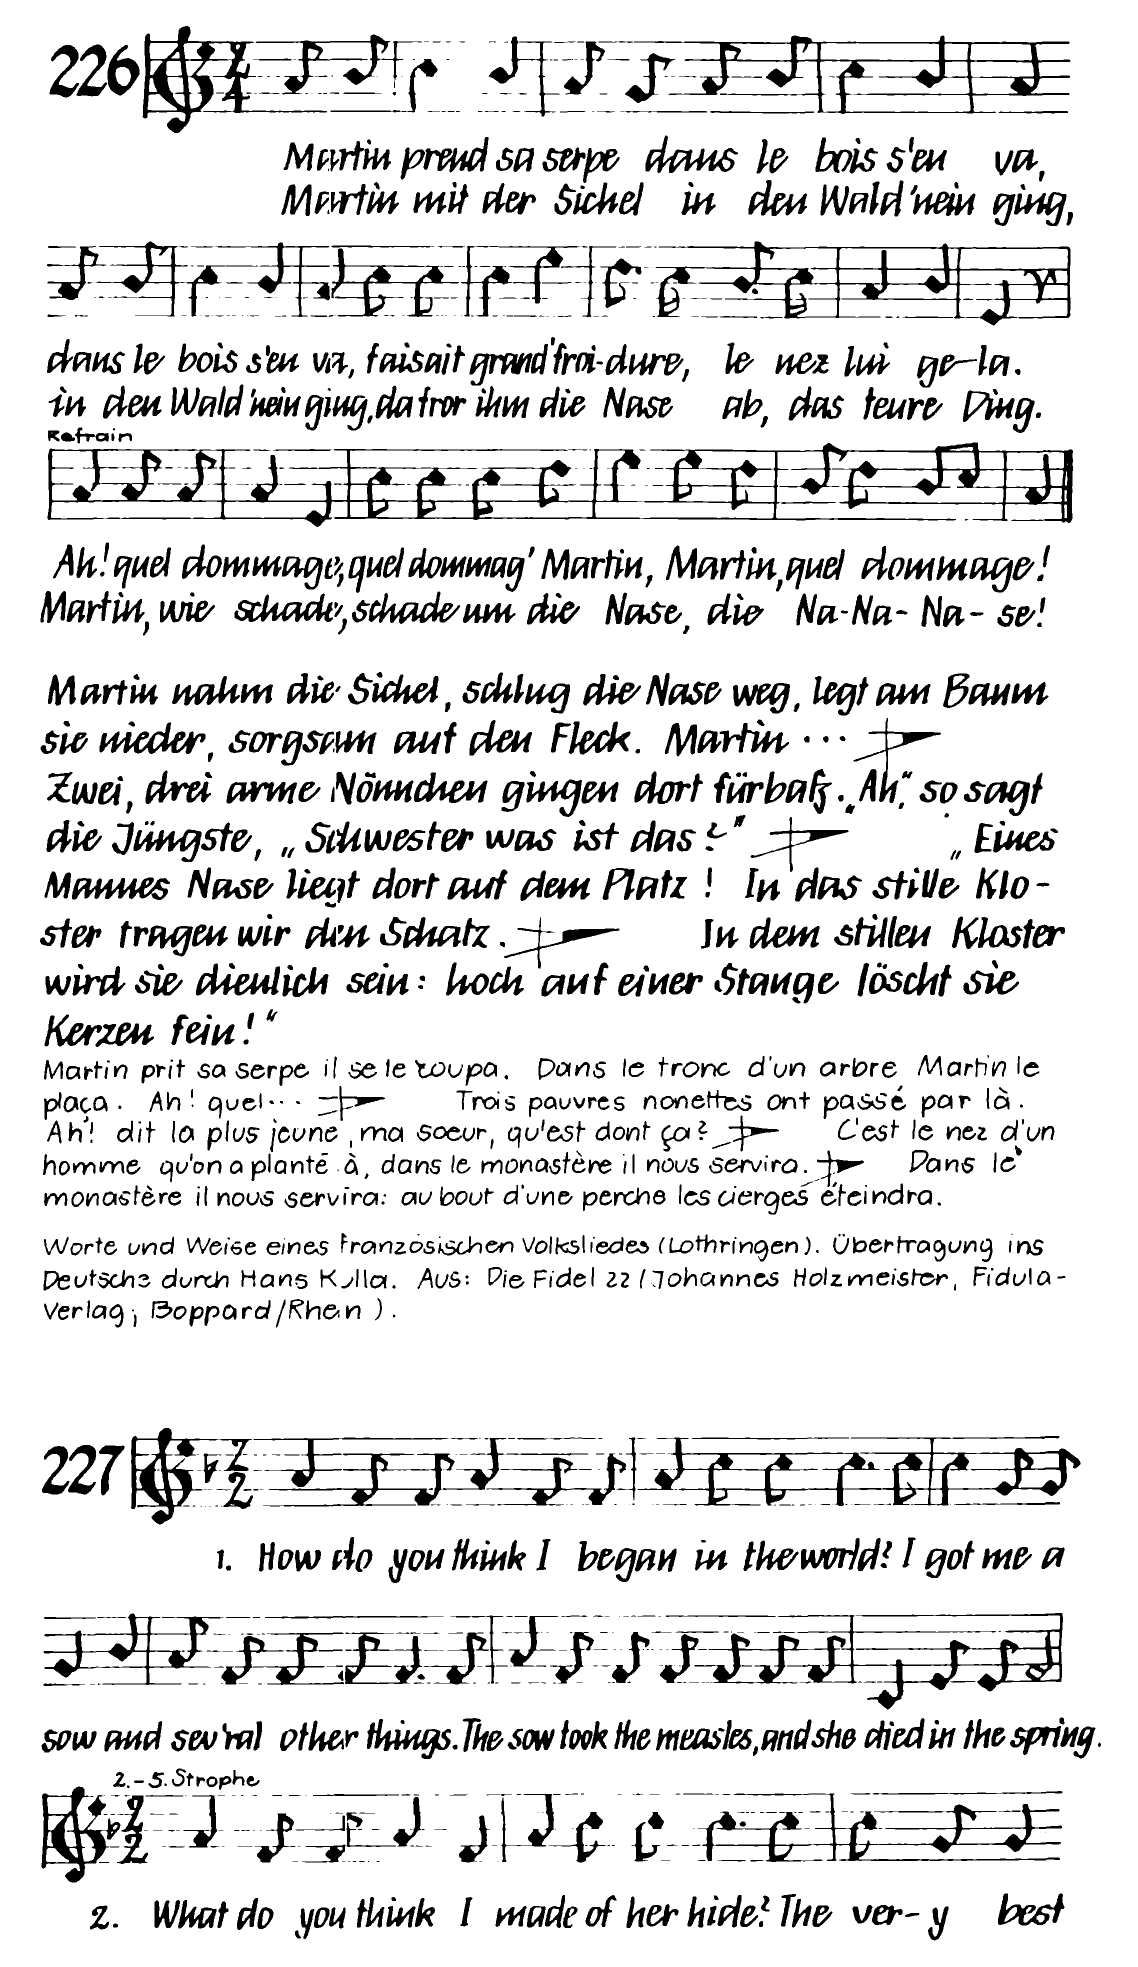 226
Martin prend sa serpe dans le bois s'en va,
Martin mit der Sichel in den Wald 'nein ging,
dans le bois s'en va, faisait grand' froi-dure, le nez lui ge-la.
in den Wald 'nein ging, da fror ihm die Nase ab, das teure Ding.
Refrain
Ah! quel dommage, quel dommag' Martin, Martin, quel dommage!
Martin, wie schade, schade um die Nase, die Na-Na-Na-se!
Martin nahm die Sichel, schlug die Nase weg, legt am Baum
sie nieder, sorgsam auf den Fleck. Martin ...
Zwei, drei arme Nönnchen gingen dort fürbaß. „Ah", so sagt
die Jüngste, „Schwester was ist das?" „Eines
Mannes Nase liegt dort auf dem Platz! In das stille Klo-
ster tragen wir den Schatz. In dem stillen Kloster
wird sie dienlich sein: hoch auf einer Stange löscht sie
Kerzen fein!"
Martin prit sa serpe il se le coupa. Dans le tronc d'un arbre Martin le
plaça. Ah! quel... Trois pauvres nonettes ont passé par là.
Ah! dit la plus jeune, ma soeur, qu'est dont ça? C'est le nez d'un
homme qu'on a planté à, dans le monastère il nous servira. Dans le
monastère il nous servira: au bout d'une perche les cierges éteindra.
Worte und Weise eines französischen Volksliedes (Lothringen). Übertragung ins
Deutsche durch Hans Kulla. Aus: Die Fidel 22 (Johannes Holzmeister, Fidula-
Verlag; Boppard/Rhein).
227
1. How do you think I began in the world? I got me a
sow and sev'ral other things. The sow took the measles, and she died in the spring.
2.-5. Strophe
2. What do you think I made of her hide? The ver-y best